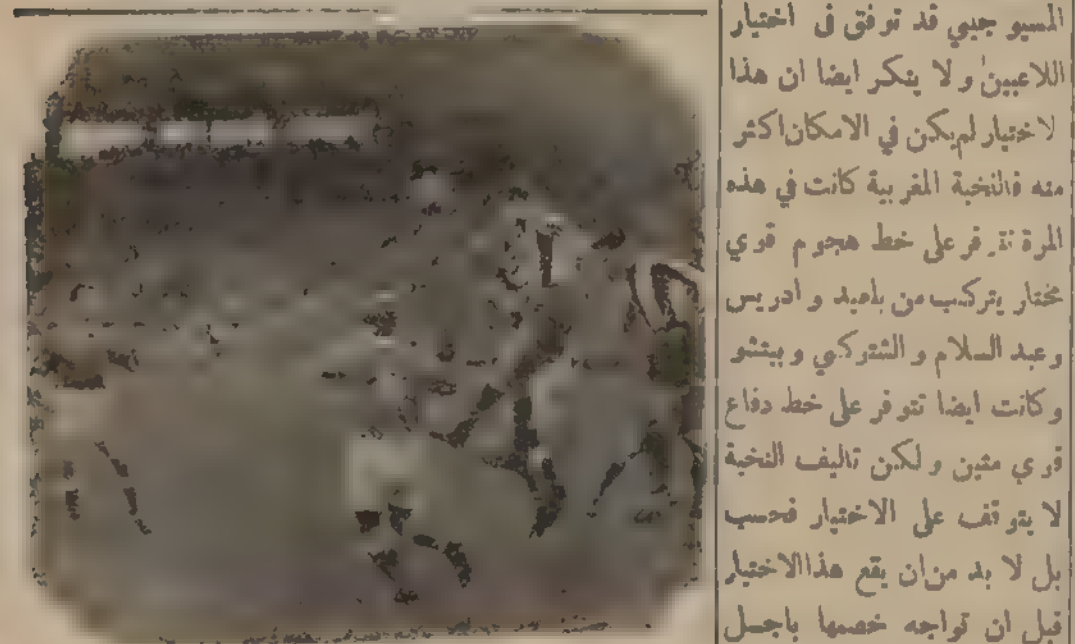 المسيو جبي قد توفق في اختيار
اللاعبين ولا ينكر ايضا ان هذا
لاختيار لم يكن في الامكان اكثر
منه فالنخبة المغربية كانت في هذه
المرة تتوفر على خط هجوم قوي
مختار يتركب من بلعيد وادريس
وعبد السلام و الشتوكي و
وكانت ايضا تتوفر على خط دفاع
قوي متين ولكن تاليف النخبة
لا يتوقف على الاختيار فحسب
بل لا بد من ان يقع هذا الاختيار
قبل ان تواجه خصمها باجل